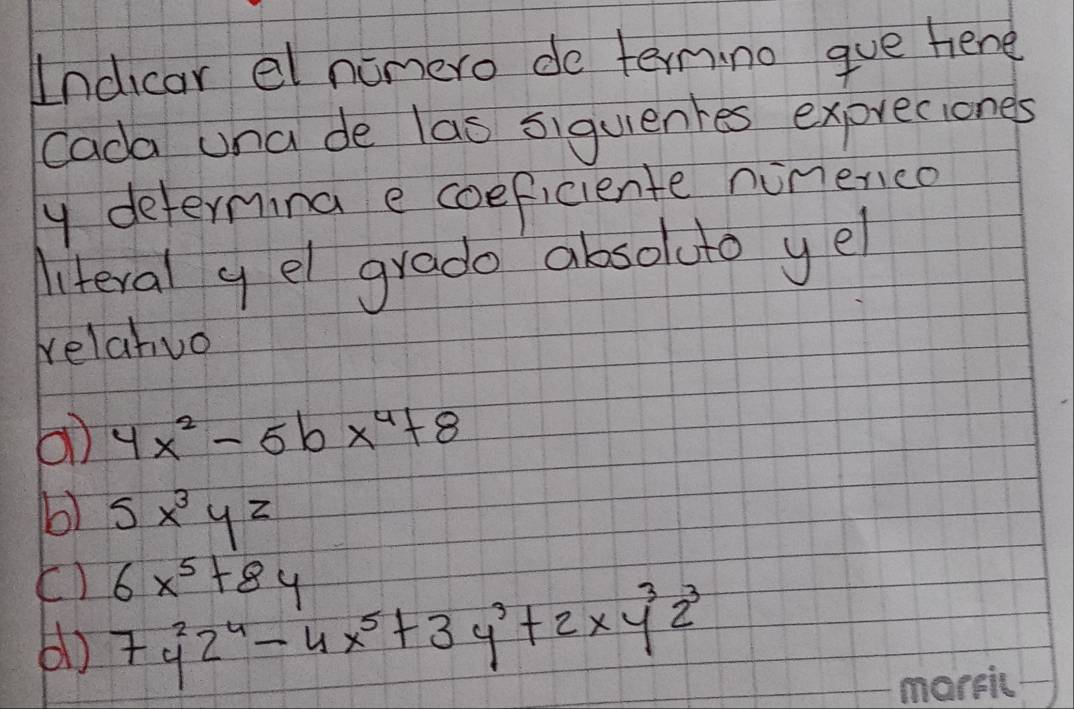 Indicar el número de termino que tiene
cada una de las siguientes expreciones
y determina e coeficiente númerico
literal y el grado absoluto y el
relativo
a) 4x² - 5bx⁴ + 8
b) 5x³yz
c) 6x⁵ + 8y
d) 7y²z⁴ - 4x⁵ + 3y³ + 2xy³z³
marfil